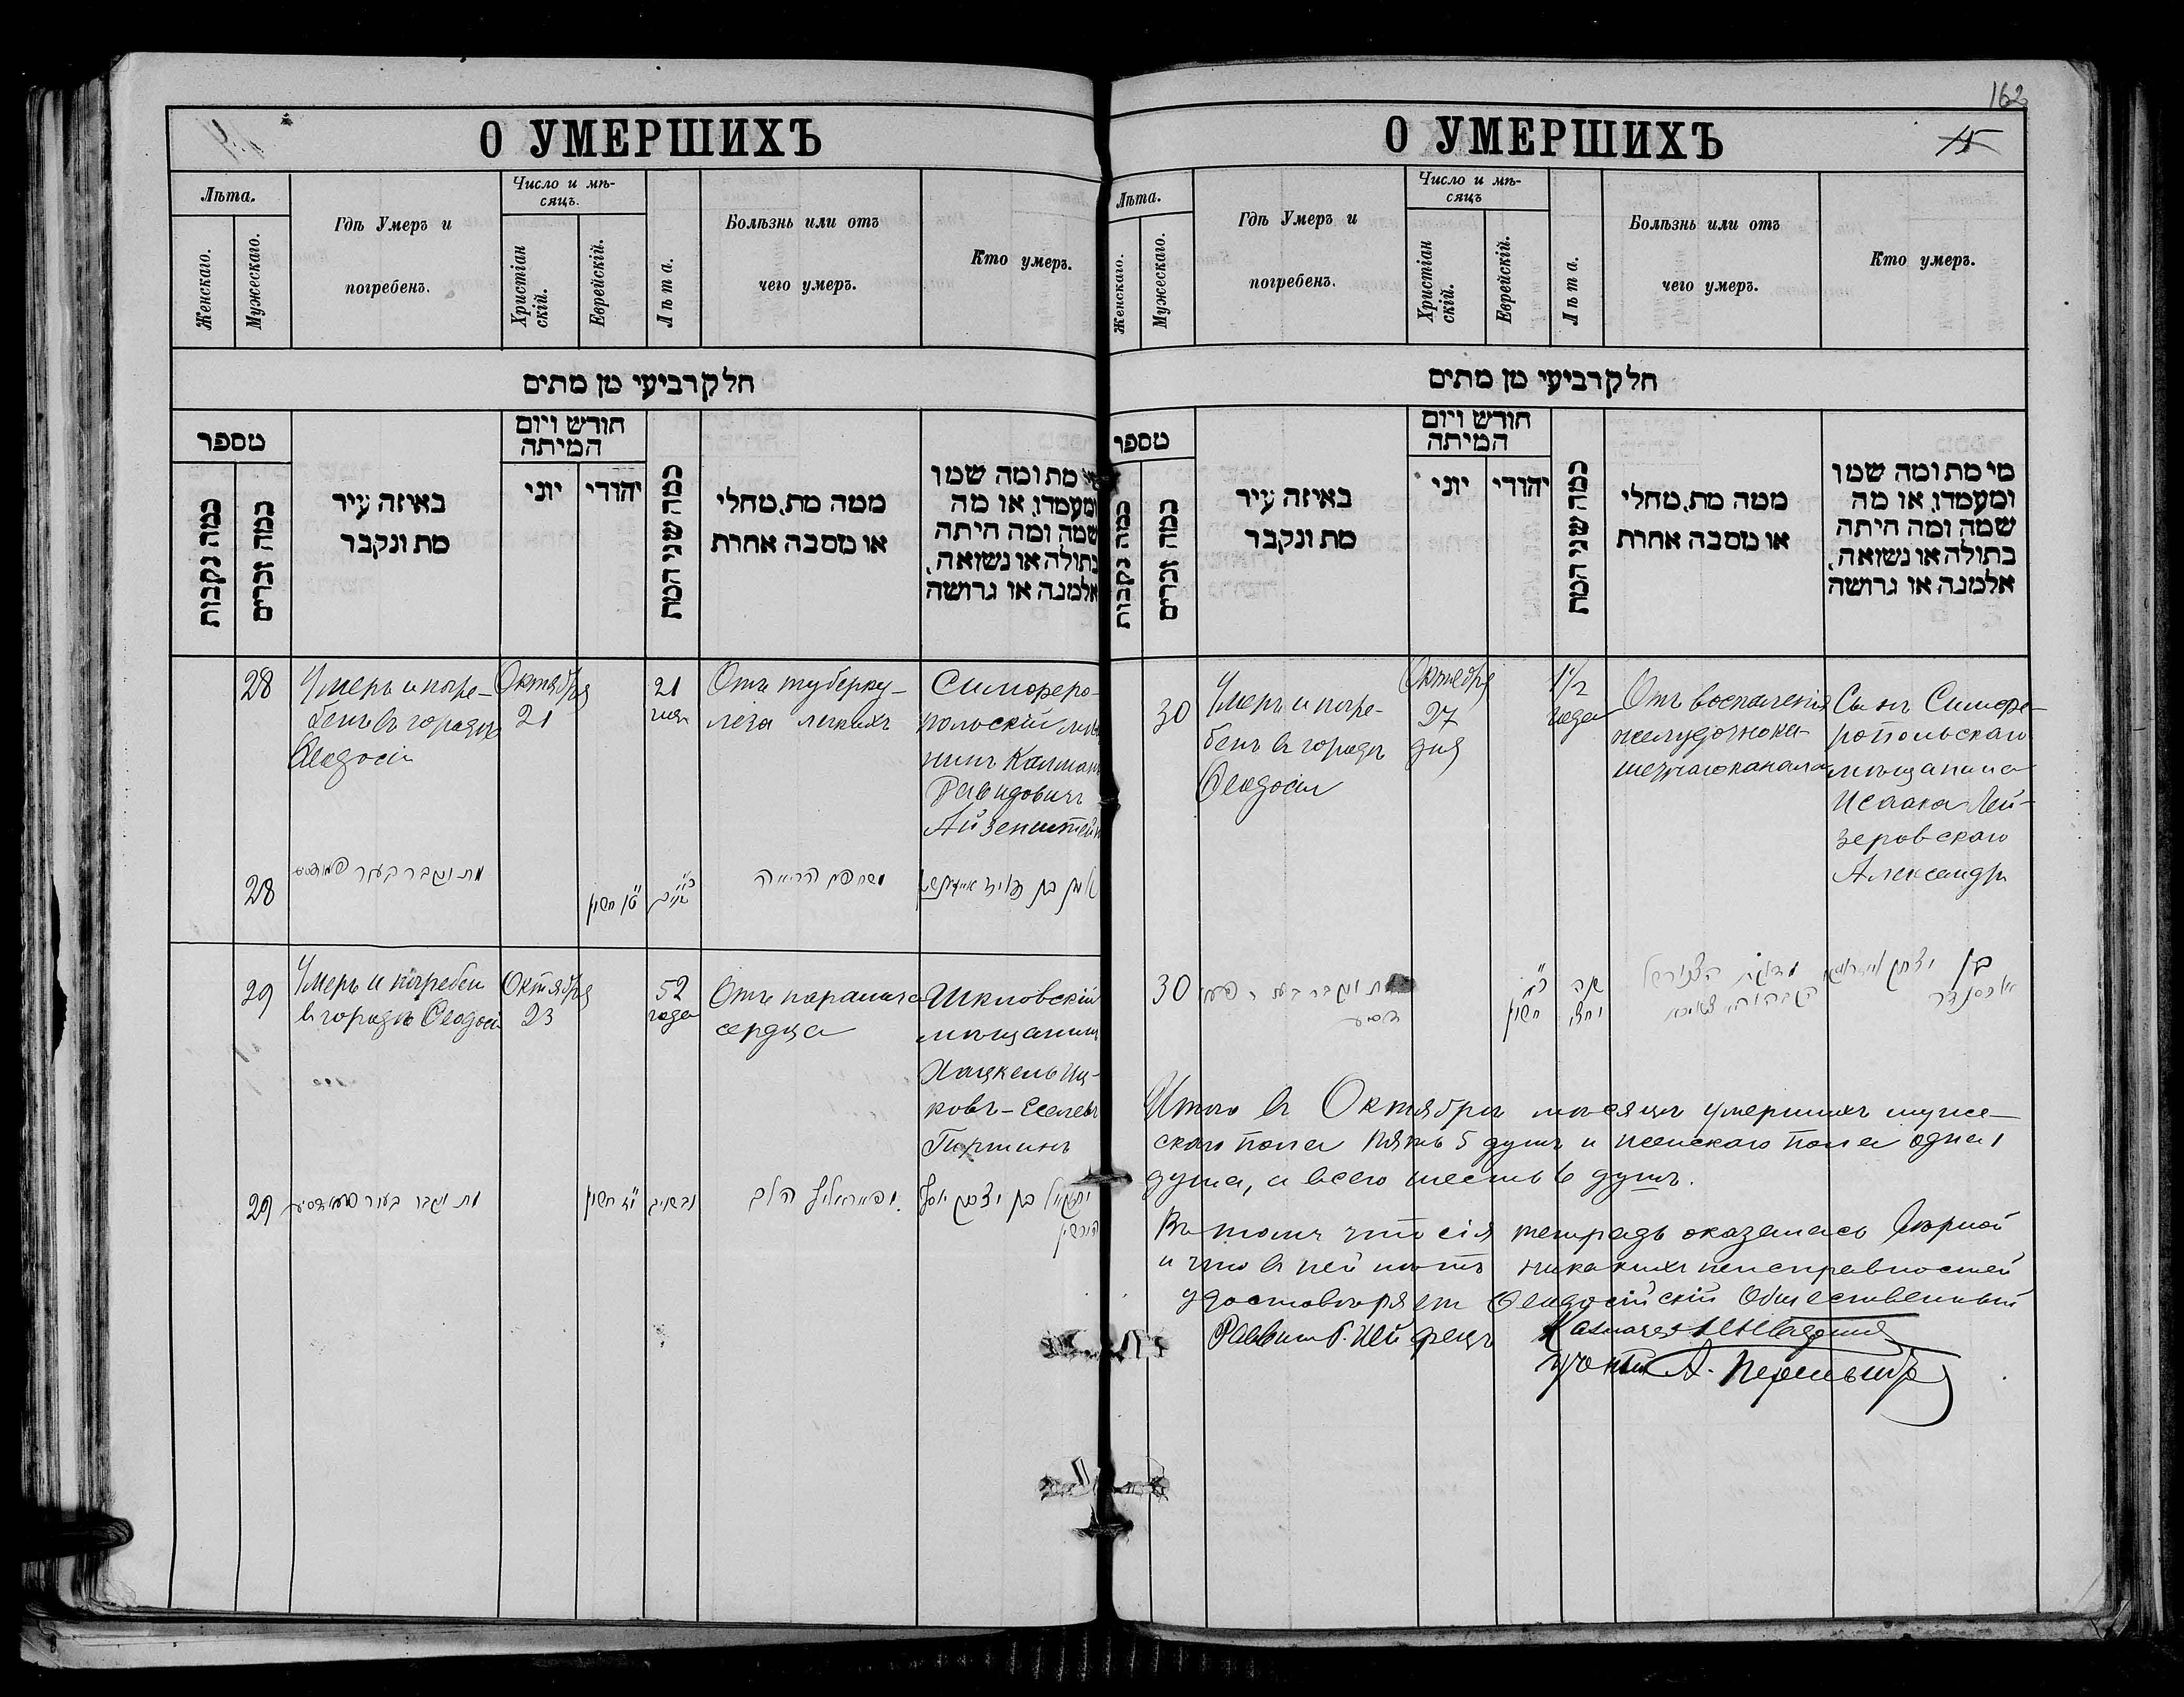 О УМЕРШИХЪ
Лѣта.
Женскаго.
Мужескаго.
Гдѣ Умеръ и
погребенъ.
Число и мѣ-
сяцъ.
Христіан
скій.
Еврейскій.
Лѣта.
Болѣзнь или отъ
чего умеръ.
Кто умеръ.
חלק רביעי מן מתים
מספר
כמה נקבות
כמה זכרים
באיזה עיר
מת ונקבר
חודש ויום
המיתה
יוני
יהודי
כמה שני המת
ממה מת, מחלי
או מסבה אחרת
מי מת ומה שמו
ומעמדו, או מה
שמה ומה היתה
בתולה או נשואה,
אלמנה או גרושה
28
Умеръ и погре-
бенъ въ городѣ
Ѳеодосіи
Октября
21
21
Отъ туберку-
леза легкихъ
Симферо-
польскій
Калман
Давидовичъ
Айзенштейн
28
מת ונקבר בעיר
חשון
הריאה
בן דוד
29
Умеръ и погребен
въ городѣ Ѳеодосіи
Октября
23
52
года
Отъ паралича
сердца
Шкловскій
мѣщанинъ
Хацкель Иц-
ковъ-
29
מת ונקבר בעיר
חשון
הלב
יחזקאל בן יצחק יוסף
162
О УМЕРШИХЪ
15
Лѣта.
Женскаго.
Мужескаго.
Гдѣ Умеръ и
погребенъ.
Число и мѣ-
сяцъ
Христіан
скій.
Еврейскій.
Лѣта.
Болѣзнь или отъ
чего умеръ.
Кто умеръ.
חלק רביעי מן מתים
מספר
כמה נקבות
כמה זכרים
באיזה עיר
מת ונקבר
חודש ויום
המיתה
יוני
יהודי
כמה שני המת
ממה מת, מחלי
או מסבה אחרת
מי מת ומה שמו
ומעמדו, או מה
שמה ומה היתה
בתולה או נשואה,
אלמנה או גרושה
30
Умеръ и погре-
бенъ въ городѣ
Ѳеодосіи
Октября
27
дня
1 1/2
года
Отъ воспаленія
желудочно ки-
шечнаго канала
Сынъ Симфе-
ропольскаго
мѣщанина
Исаака Лей-
зеровскаго
Александръ
30
חשון
שנה
וחצי
בן יצחק
אלכסנדר
Итого въ Октябрѣ мѣсяцѣ умершихъ муже-
скаго пола пять 5 душъ и женскаго пола одна 1
душа, а всего шесть 6 душъ.
Въ томъ что сія тетрадь оказалась вѣрной
и что въ ней нѣтъ никакихъ неисправностей
удостовѣряетъ Ѳеодосійскій Общественный
Раввинъ
Казначей
А.